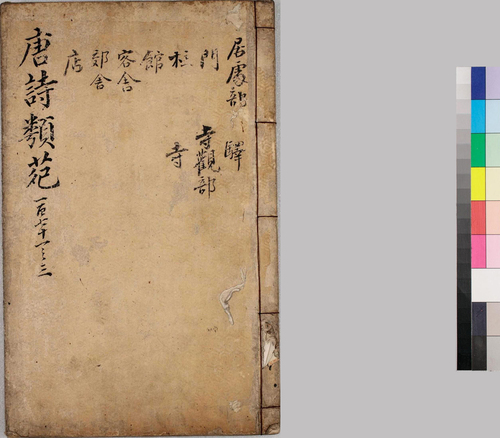 居處部
門
柱
館
客舍
郊舍
店
驛
寺觀部
寺
唐詩類苑
一百七十一之三